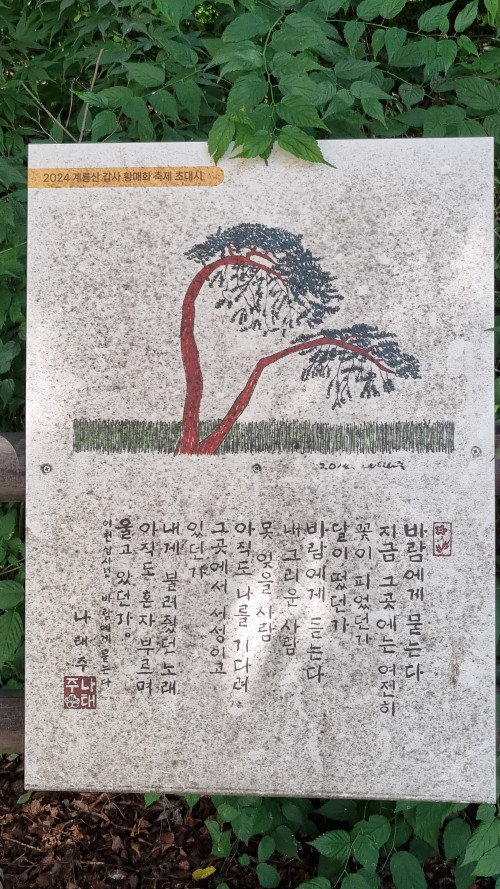 2024 계룡산 갑사 황매화 축제 초대시
2014. 나태주
바람에게 묻는다
지금 그곳에는 여전히
꽃이 피었던가
달이 떴던가
바람에게 듣는다
내 그리운 사람
못 잊을 사람
아직도 나를 기다려
그곳에서 서성이고
있던가
내게 불러줬던 노래
아직도 혼자 부르며
울고 있던가.
이천십사년, 바람에게 묻는다
나태주
나태주